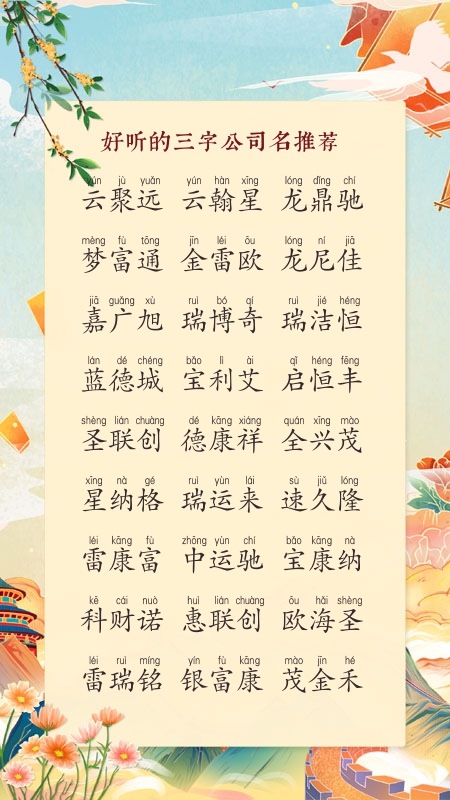 好听的三字公司名推荐
yún jù yuǎn yún hàn xīng lóng dǐng chí
云聚远 云翰星 龙鼎驰
mèng fù tōng jīn léi ōu lóng ní jiā
梦富通 金雷欧 龙尼佳
jiā guǎng xù ruì bó qí ruì jié héng
嘉广旭 瑞博奇 瑞洁恒
lán dé chéng bǎo lì ài qǐ héng fēng
蓝德城 宝利艾 启恒丰
shèng lián chuàng dé kāng xiáng quán xīng mào
圣联创 德康祥 全兴茂
xīng nà gé ruì yùn lái sù jiǔ lóng
星纳格 瑞运来 速久隆
léi kāng fù zhōng yùn chí bǎo kāng nà
雷康富 中运驰 宝康纳
kē cái nuò huì lián chuàng ōu hǎi shèng
科财诺 惠联创 欧海圣
léi ruì míng yín fù kāng mào jīn hé
雷瑞铭 银富康 茂金禾